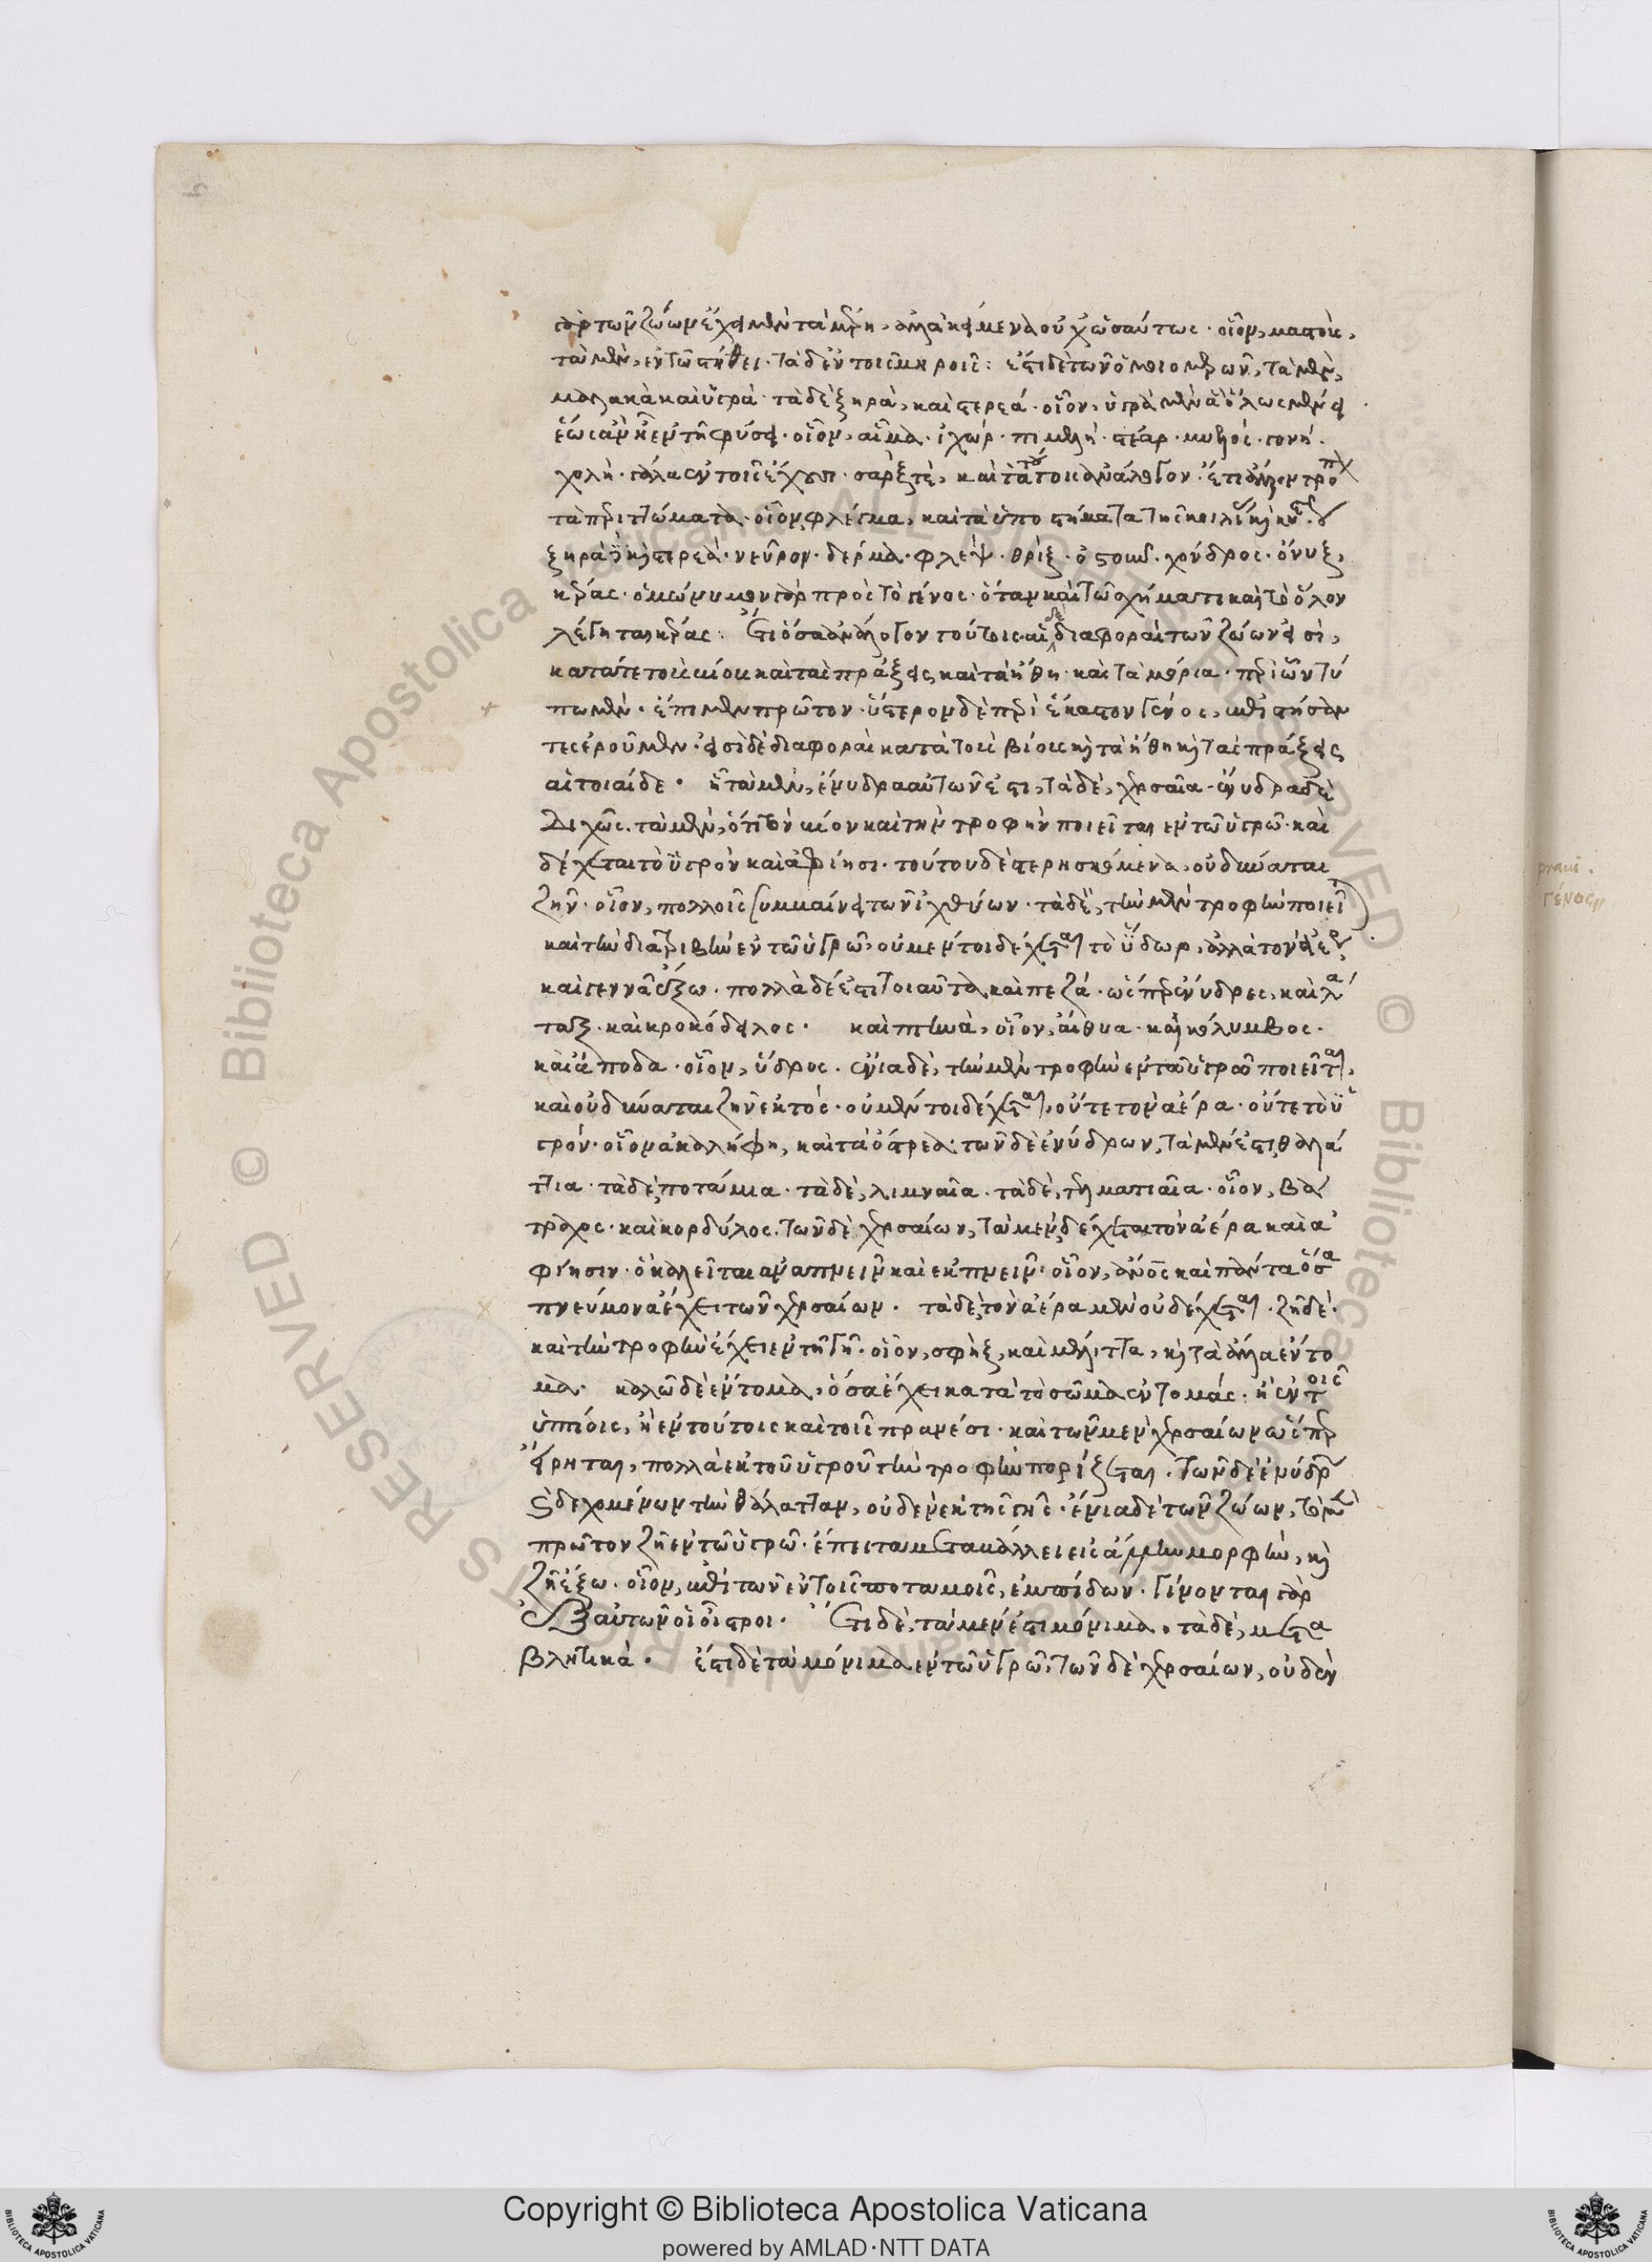 γὰρ τῶν ζώων ἔχει μὲν τὰ μέρη, ἀλλὰ κείμενα οὐχ ὡσαύτως· οἷον, μαστοὺς,
τὰ μὲν, ἐν τῶ στήθει· τὰ δ' ἐν τοῖς μηροῖς: ἔστι δὲ τῶν ὁμοιομερῶν, τὰ μὲν,
μαλακὰ καὶ ὑγρά· τὰ δὲ ξηρὰ, καὶ στερεά· οἷον, ὑγρὰ μὲν ἃ ὅλως μὲν ἢ
ἕως ἂν ἦ ἐν τῆ φύσει· οἷον, αἷμα· ἰχώρ· πιμελή· στέαρ· μυελός· γονή·
χολή· γάλα ἐν τοῖς ἔχουσι· σάρξ τὲ, καὶ τὰ τούτοις ἀνάλογον· ἔτι ἄλλον τρόπον
τὰ περιττώματα· οἷον, φλέγμα, καὶ τὰ ὑποστήματα τῆς κοιλίας καὶ κύστεως·
ξηρὰ δὲ καὶ στερεὰ· νεῦρον· δέρμα· φλέψ· θρίξ· ὀστοῦν· χόνδρος· ὄνυξ,
κέρας· ὁμώνυμον γὰρ πρὸς τὸ γένος· ὅταν καὶ τῶ σχήματι καὶ τὸ ὅλον
λέγηται κέρας: Ἔτι ὅσα ἀνάλογον τούτοις· αἱ δὲ διαφοραὶ τῶν ζώων εἰσὶ,
κατά τε τοὺς βίους καὶ τὰς πράξεις καὶ τὰ ἤθη· καὶ τὰ μόρια· περὶ ὧν τύ
πω μὲν· εἴπωμεν πρῶτον· ὕστερον δὲ περὶ ἕκαστον γένος, ἐπιστήσαν
τες ἐροῦμεν· εἰσὶ δὲ διαφοραὶ κατὰ τοὺς βίους καὶ τὰ ἤθη καὶ τὰς πράξεις
αἱ τοιαίδε· ἧ τὰ μὲν, ἔνυδρα αὐτῶν ἐστι, τὰ δὲ, χερσαῖα· ἔνυδρα δὲ
διχῶς· τὰ μὲν, ὅτι τὸν βίον καὶ τὴν τροφὴν ποιεῖται ἐν τῶ ὑγρῶ· καὶ
δέχεται τὸ ὑγρὸν καὶ ἀφίησι· τούτου δὲ στερησκόμενα, οὐ δύναται
ζῆν· οἷον, πολλοῖς συμβαίνει τῶν ἰχθύων· τὰ δὲ, τὴν μὲν τροφὴν ποιεῖ
καὶ τὴν διατριβὴν ἐν τῶ ὑγρῶ· οὐ μέντοι δέχεται τὸ ὕδωρ, ἀλλὰ τὸν ἀέρα
καὶ γεννᾶ ἔξω· πολλὰ δέ ἐστι τοιαῦτα καὶ πεζά· ὥσπερ ἐνύδρις, καὶ λά
ταξ· καὶ κροκόδειλος· καὶ πτηνὰ, οἷον, αἴθυα· καὶ κόλυμβος·
καὶ ἄποδα· οἷον, ὕδρος· ἔνια δὲ, τὴν μὲν τροφὴν ἐν τῶ ὑγρῶ ποιεῖται,
καὶ οὐ δύναται ζῆν ἐκτός· οὐ μέντοι δέχεται, οὔτε τὸν ἀέρα· οὔτε τὸ ὑ
γρόν· οἷον ἀκαλήφη, καὶ τὰ ὄστρεα· τῶν δὲ ἐνύδρων, τὰ μέν ἐστι θαλά
ττια· τὰ δὲ ποτάμια· τὰ δὲ, λιμναῖα· τὰ δὲ, τελματιαῖα· οἷον, βά
τραχος· καὶ κορδύλος. τῶν δὲ χερσαίων, τὰ μὲν, δέχεται τὸν ἀέρα καὶ ἀ
φίησιν· ὃ καλεῖται ἀναπνεῖν καὶ ἐκπνεῖν· οἷον, ἄνος καὶ πάντα ὅσα
πνεύμονα ἔχει τῶν χερσαίων. τὰ δὲ, τὸν ἀέρα μὲν οὐ δέχεται· ζῆ δὲ·
καὶ τὴν τροφὴν ἔχει ἐν τῆ γῆ· οἷον, σφὴξ, καὶ μέλιττα, καὶ τὰ ἄλλα ἔντο
μα· καλῶ δὲ ἔντομα, ὅσα ἔχει κατὰ τὸ σῶμα ἐντομάς· ἢ ἐν τοῖς
ὑπτίοις, ἢ ἐν τούτοις καὶ τοῖς πρανέσι· καὶ τῶν μὲν χερσαίων ὥσπερ
εἴρηται, πολλὰ ἐκ τοῦ ὑγροῦ τὴν τροφὴν πορίζεται. τῶν δὲ ἐνύδρων
δεχομένων τὴν θάλατταν, οὐδὲν ἐκ τῆς γῆς· ἔνια δὲ τῶν ζώων, τὸ μὲν
πρῶτον ζῆ ἐν τῶ ὑγρῶ· ἔπειτα μεταβάλλει εἰς ἄλλην μορφὴν, καὶ
ζῆ ἔξω· οἷον, ἐπὶ τῶν ἐν τοῖς ποταμοῖς, ἐμπίδων· γίνονται γὰρ
ἐξ αὐτῶν οἱ οἶστροι· Ἔτι δὲ, τὰ μέν ἐστι μόνιμα, τὰ δὲ, μετα
βλητικά. ἔστι δὲ τὰ μόνιμα ἐν τῶ ὑγρῶ· τῶν δὲ χερσαίων, οὐδὲν
Copyright © Biblioteca Apostolica Vaticana
powered by AMLAD·NTT DATA